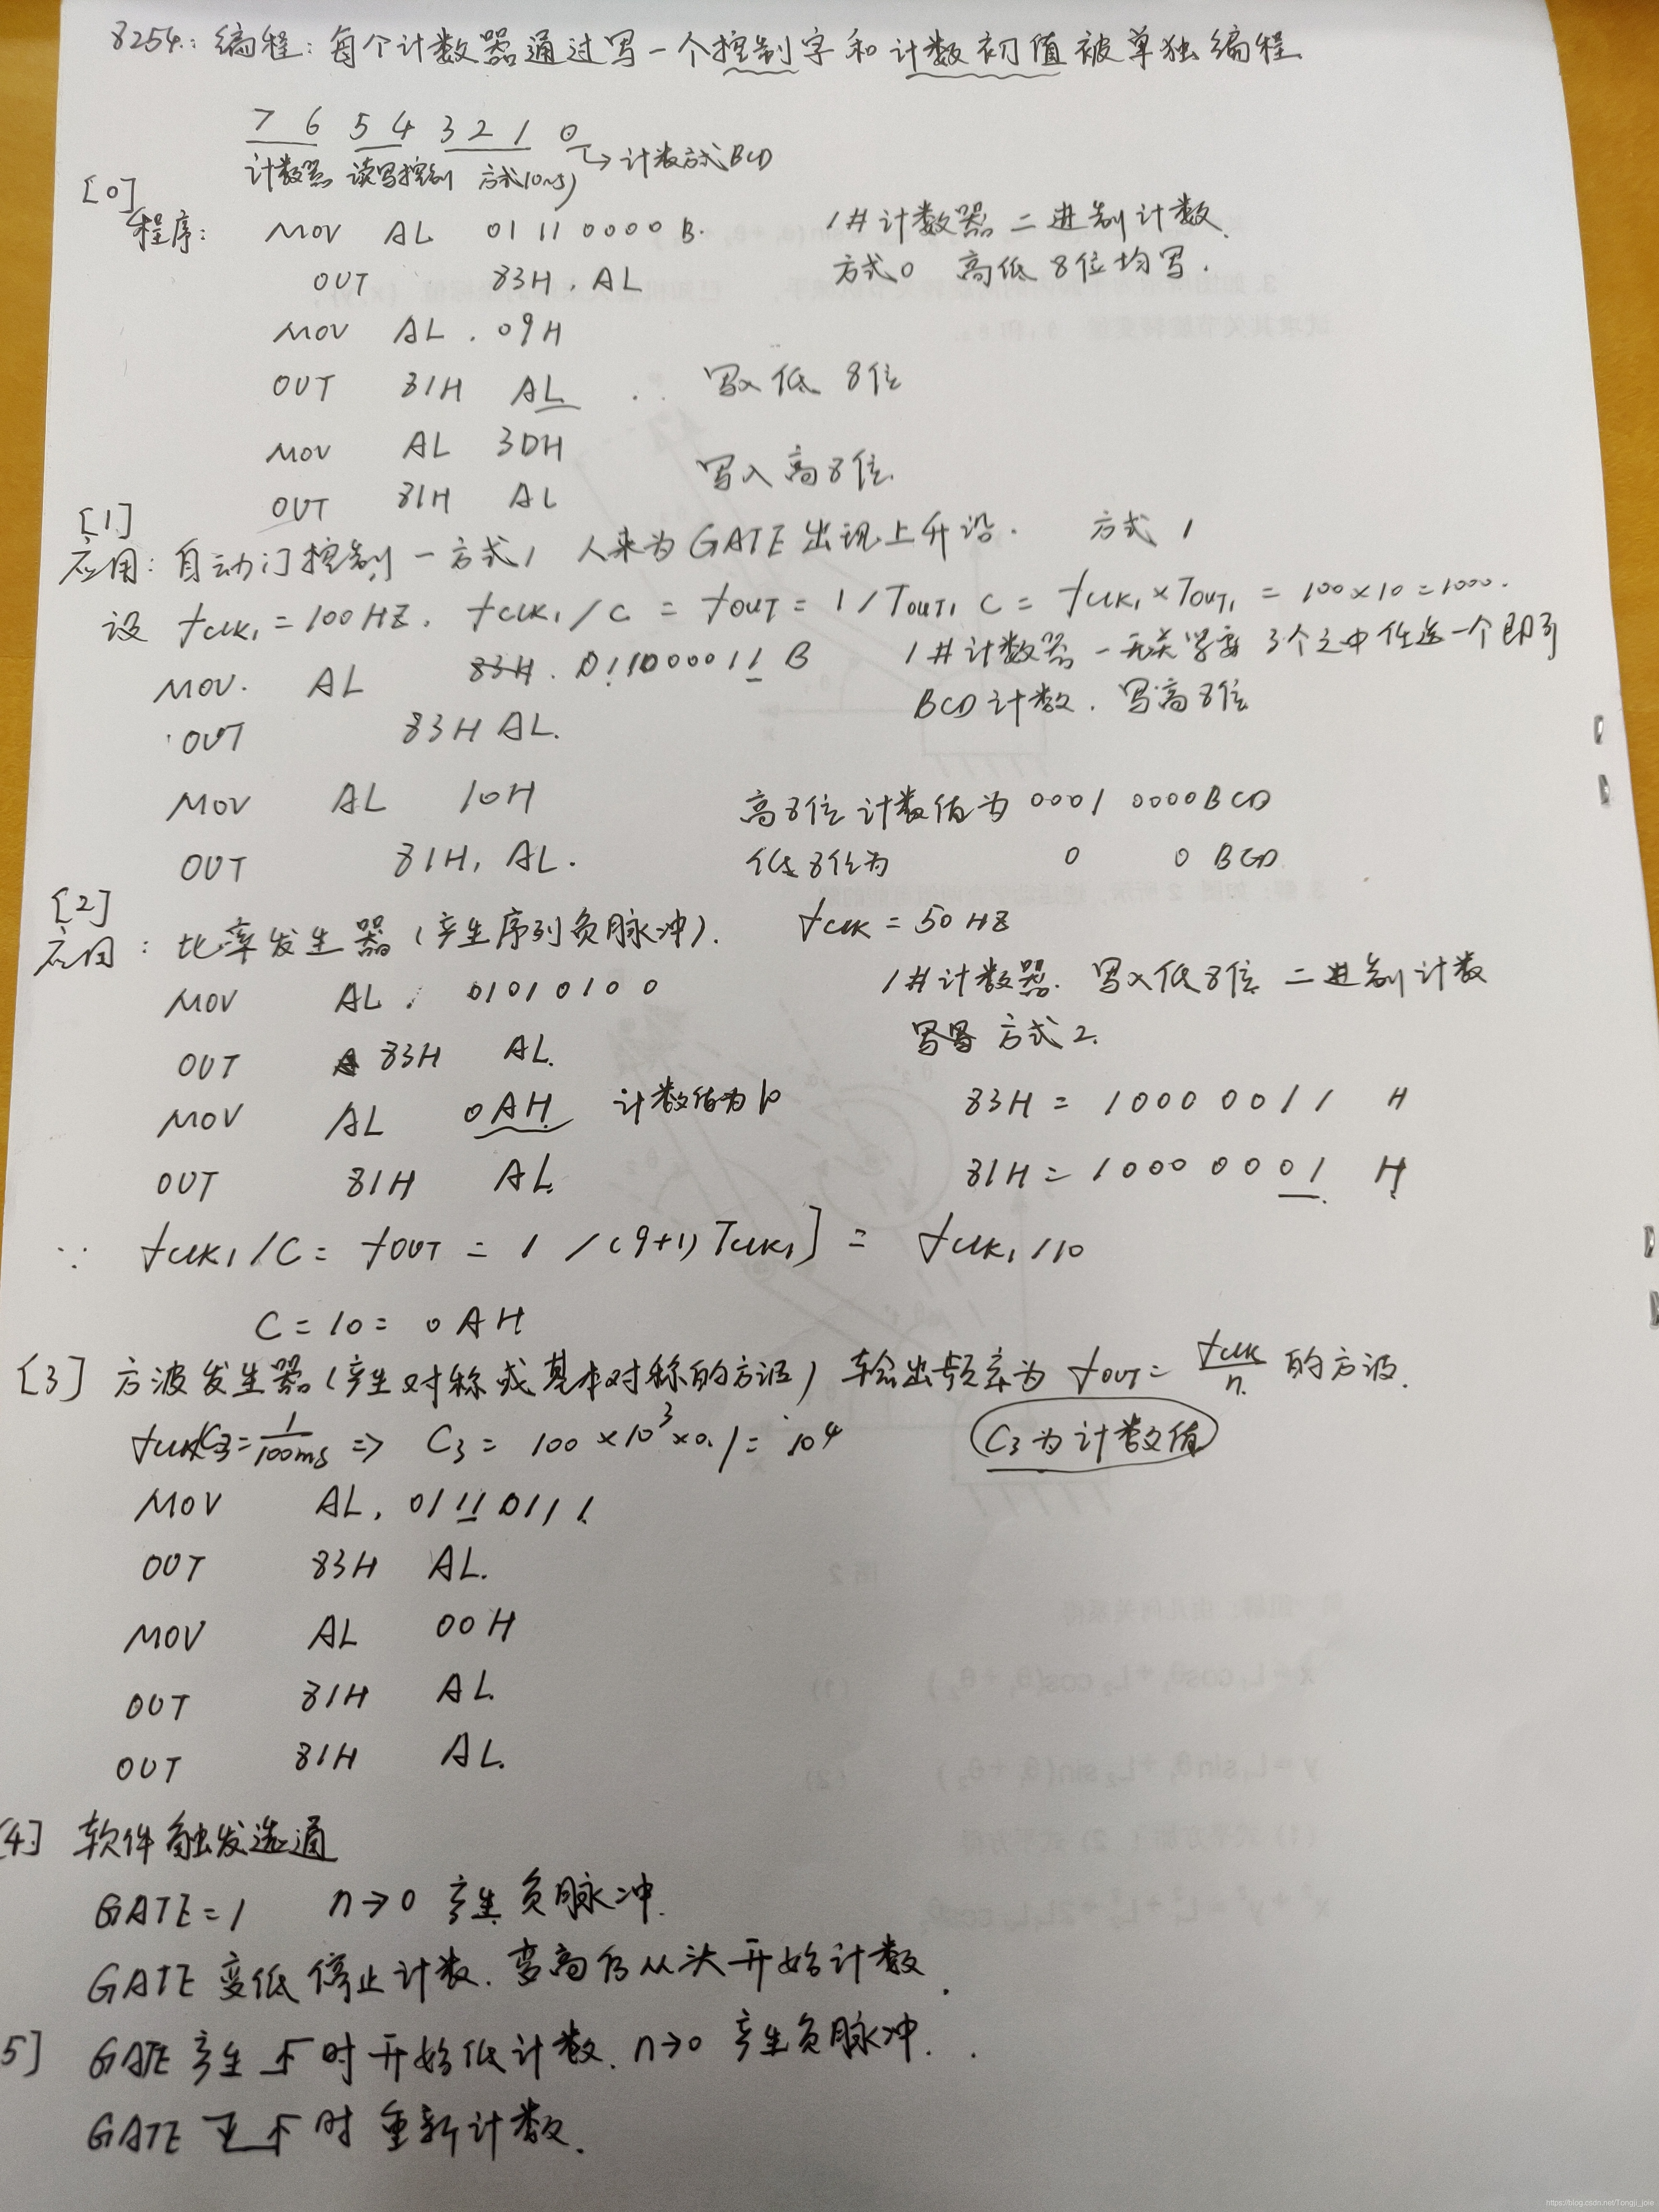 8254: 编程: 每个计数器通过写一个控制字和计数初值被单独编程
7 6 5 4 3 2 1 0 → 计数方式BCD
计数器 读写控制 方式(0~5)
[0]
程序: MOV AL 01110000B. 1#计数器 二进制计数.
OUT 83H, AL 方式0 高低8位均写.
MOV AL, 09H
OUT 81H AL 写入低8位
MOV AL 3DH
OUT 81H AL 写入高8位.
[1]
应用: 自动门控制-方式1 人来为GATE出现上升沿. 方式1
设 fCLK1=100HZ. fCLK1/C = fOUT = 1/TOUT1 C = fCLK1×TOUT1 = 100×10=1000.
MOV. AL 83H. 01100011B 1#计数器-无关紧要 3个之中任选一个即可
OUT 83H AL. BCD计数. 写高8位
MOV AL 10H 高8位计数值为 0001 0000BCD
OUT 81H, AL. 低8位为 0 0 BCD
[2]
应用: 比率发生器(产生序列负脉冲). fCLK=50HZ
MOV AL, 01010100 1#计数器. 写入低8位 二进制计数
OUT 83H AL. 方式2.
MOV AL 0AH 计数值为10 83H = 1000 0011 H
OUT 81H AL. 81H = 1000 0001 H
∵ fCLK1/C = fOUT = 1/(9+1)TCLK1] = fCLK1/10
C = 10 = 0AH
[3] 方波发生器(产生对称或基本对称的方波) 输出频率为 fOUT = fCLK/n 的方波.
fCLK/C3=1/100ms ⇒ C3 = 100×10³×0.1 = 10⁴ C3为计数值
MOV AL, 01110111
OUT 83H AL.
MOV AL 00H
OUT 81H AL.
OUT 81H AL.
[4] 软件触发选通
GATE=1 n→0 产生负脉冲.
GATE变低停止计数. 变高后从头开始计数.
5] GATE产生 时开始低计数. n→0 产生负脉冲.
GATE 时重新计数.
https://blog.csdn.net/Tongji_jole